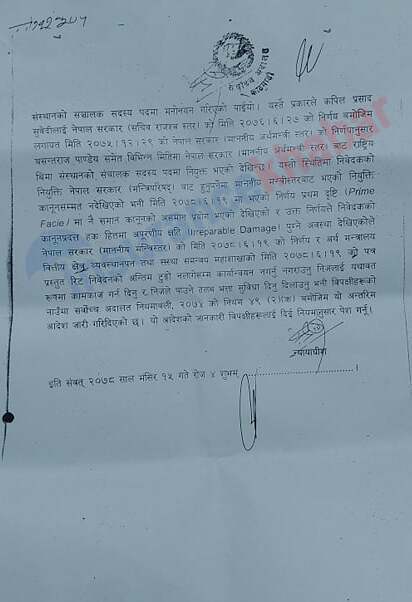 संस्थानको सञ्चालक सदस्य पदमा मनोनयन गरिएको पाईयो। यस्तै प्रकारले कपिल प्रसाद
सुवेदीलाई नेपाल सरकार (सचिव राजश्व स्तर) को मिति २०७६।६।२७ को निर्णय बमोजिम
लगायत मिति २०७५।१२।२९ को नेपाल सरकार (माननीय अर्थमन्त्री स्तर) को निर्णयानुसार
बसन्तराज पाण्डेय समेत विभिन्न मितिमा नेपाल सरकार (माननीय अर्थमन्त्री स्तर) बाट राष्ट्रिय
बिमा संस्थानको संचालक सदस्य पदमा नियुक्त भएको देखिन्छ। यस्तो स्थितिमा निवेदकको
नियुक्ति नेपाल सरकार (मन्त्रिपरिषद्) बाट हुनुपर्नेमा माननीय मन्त्रीस्तरबाट भएको नियुक्ति
कानूनसम्मत नदेखिएको भनी मिति २०७८।६।१९ मा भएको निर्णय प्रथम दृष्टि (Prime
Facie) मा नै समान कानूनको असमान प्रयोग भएको देखिएको र उक्त निर्णयले निवेदकको
कानूनप्रदत्त हक हितमा अपूरणीय क्षति (Irreparable Damage) पुग्ने अवस्था देखिएकोले
नेपाल सरकार (माननीय मन्त्रिस्तर) को मिति २०७८।६।१९ को निर्णय र अर्थ मन्त्रालय
वित्तीय क्षेत्र व्यवस्थापन तथा संस्था समन्वय महाशाखाको मिति २०७८।६।१९ को पत्र
प्रस्तुत रिट निवेदनको अन्तिम टुङ्गो नलागेसम्म कार्यान्वयन नगर्नु नगराउनु निजलाई यथावत
रूपमा कामकाज गर्न दिनु र निजले पाउने तलब भत्ता सुविधा दिनु दिलाउनु भनी विपक्षीहरूको
नाउँमा सर्वोच्च अदालत नियमावली, २०७४ को नियम ४९ (२)(क) बमोजिम यो अन्तरिम
आदेश जारी गरिदिएको छ। यो आदेशको जानकारी विपक्षीहरूलाई दिई नियमानुसार पेश गर्नू।
न्यायाधीश
इति संवत् २०७८ साल मंसिर १५ गते रोज ४ शुभम् ................................।